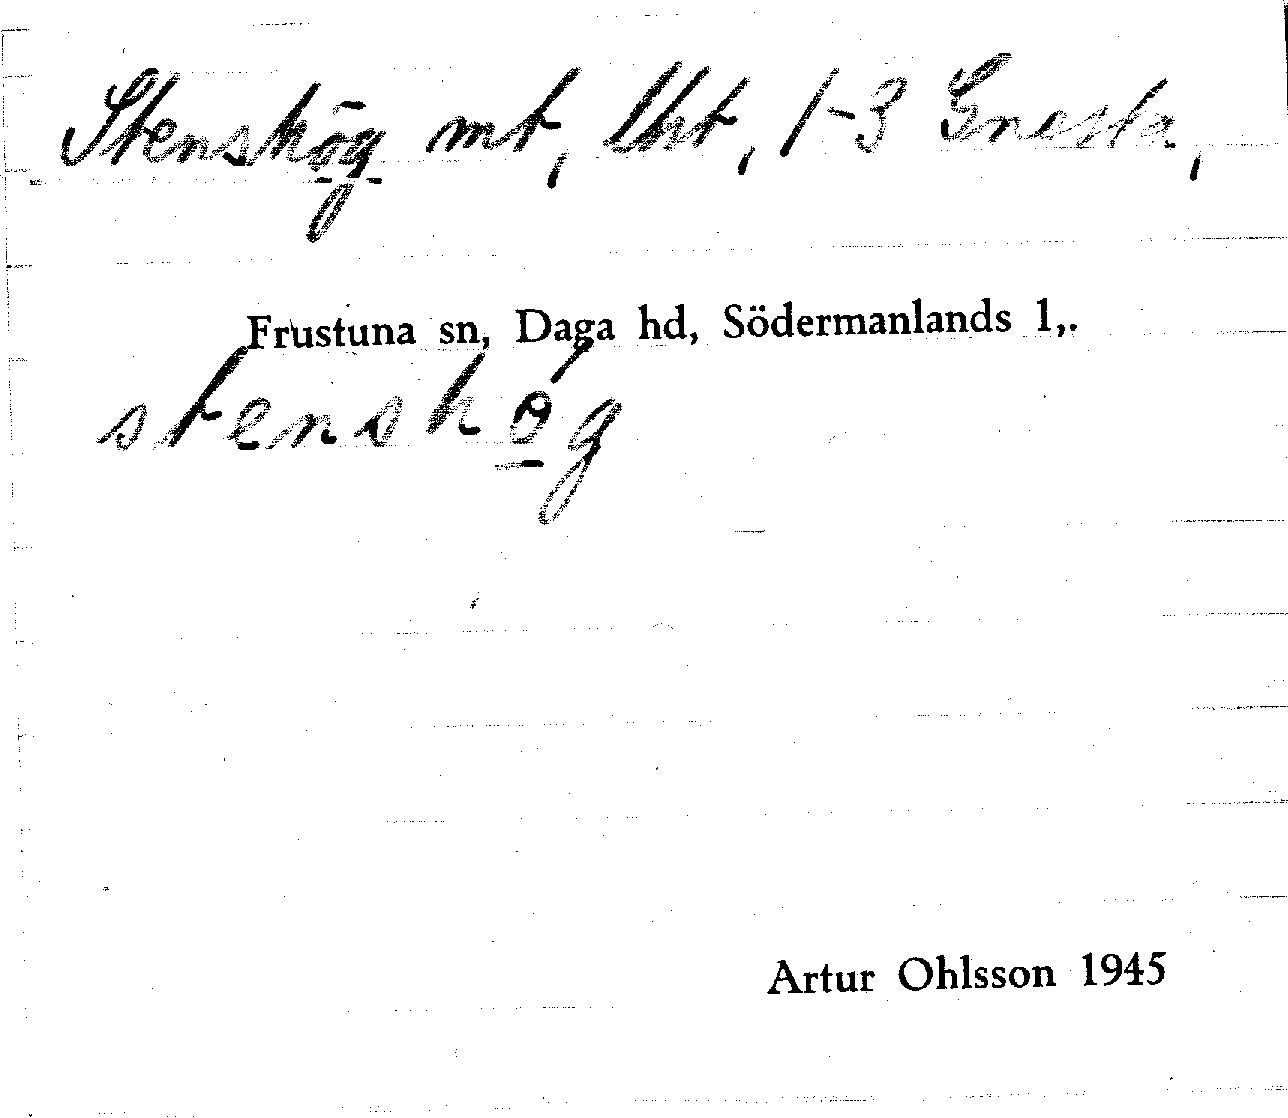 Stenshög mt, lht, 1-3 Gnesta,
Frustuna sn, Daga hd, Södermanlands l,.
stenshög
Artur Ohlsson 1945